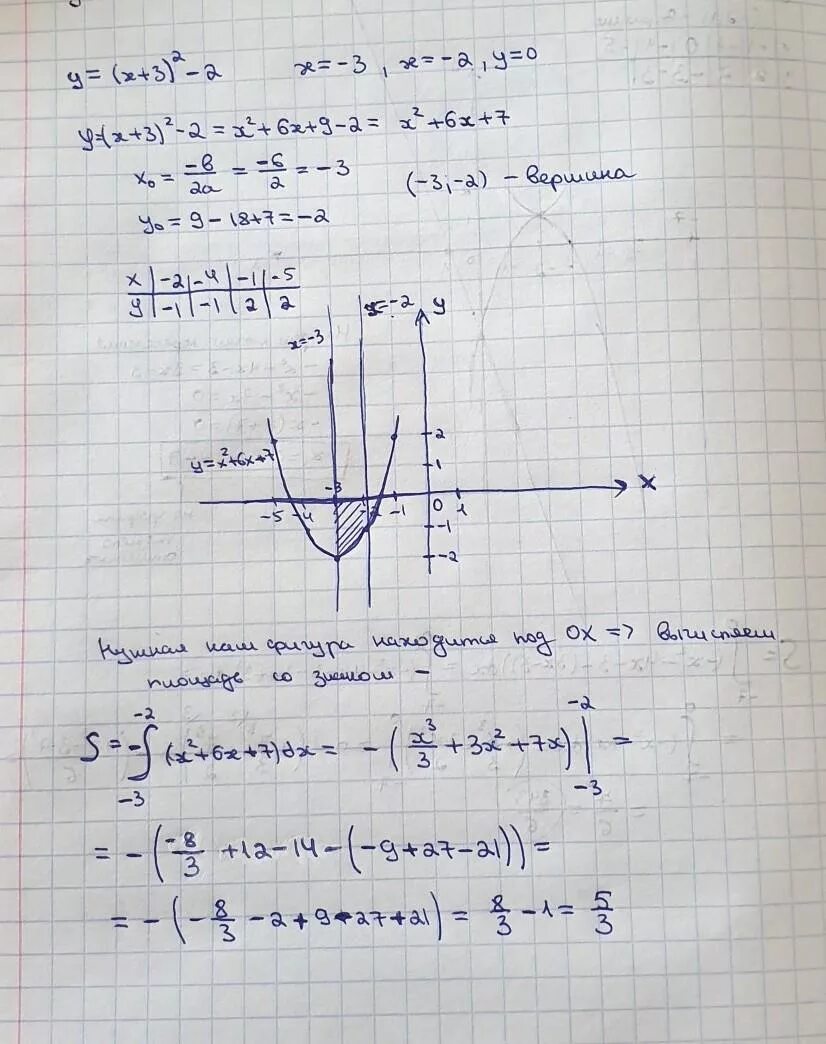 y = (x+3)² - 2     x = -3 , x = -2 , y = 0
y = (x+3)² - 2 = x² + 6x + 9 - 2 = x² + 6x + 7
x₀ = -в/2a = -6/2 = -3     (-3, -2) - вершина
y₀ = 9 - 18 + 7 = -2
x | -2 | -4 | -1 | -5
y | -1 | -1 | 2 | 2
x = -3     x = -2     y
y = x² + 6x + 7
2
1
-3
-5 -4 -2 -1 0 1 x
-1
-2
Нужная нам фигура находится под OX => вычисляем
площадь со знаком -
S = -∫₋₃⁻² (x² + 6x + 7) dx = -(x³/3 + 3x² + 7x) |₋₃⁻² =
= -(-8/3 + 12 - 14 - (-9 + 27 - 21)) =
= -(-8/3 - 2 + 9 - 27 + 21) = 8/3 - 1 = 5/3